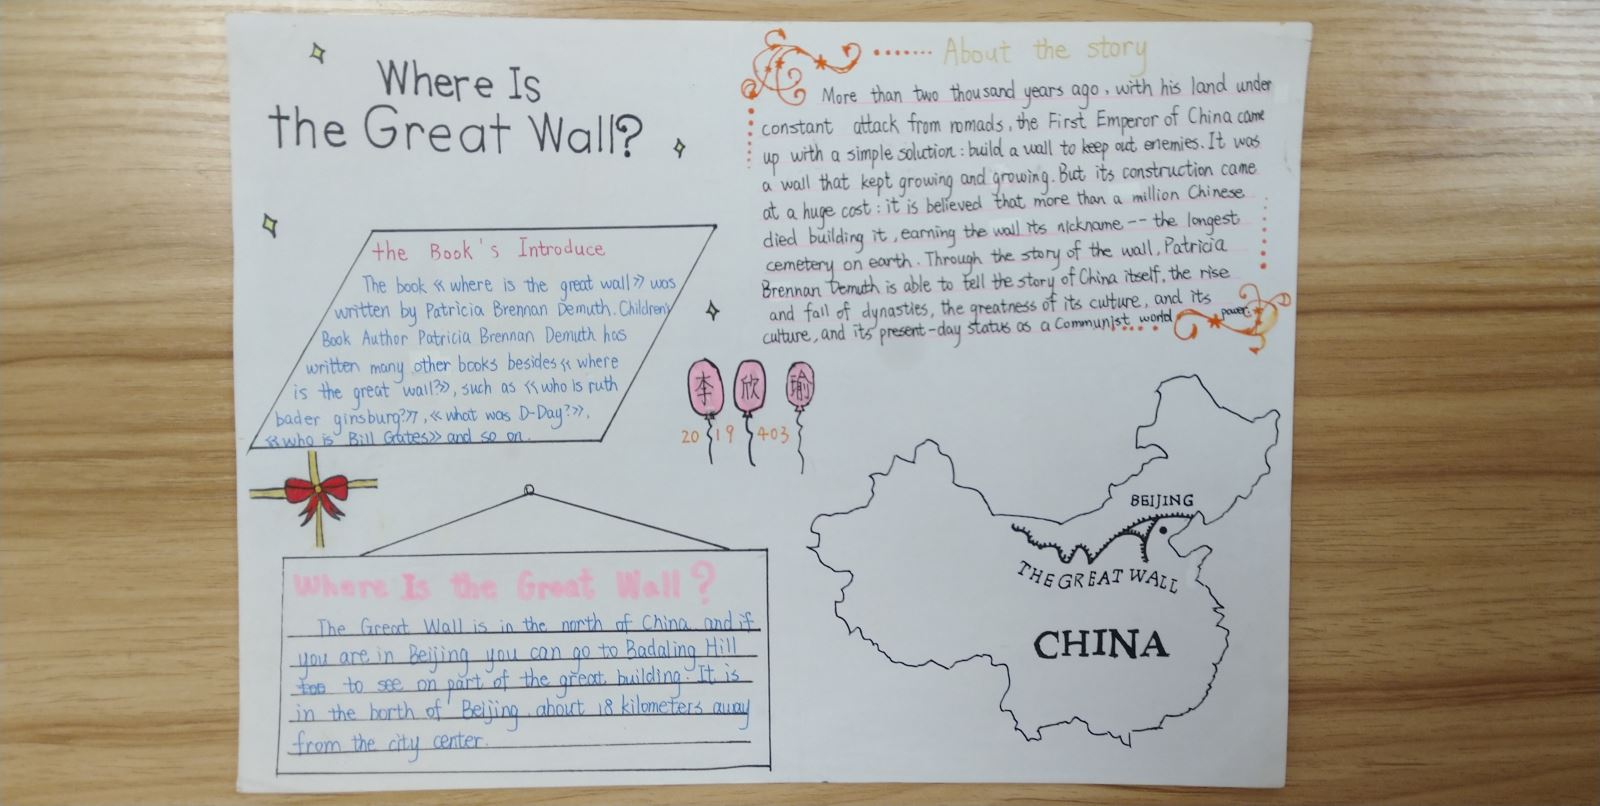 Where Is
the Great Wall?
the Book's Introduce
The book 《where is the great wall》 was
written by Patricia Brennan Demuth. Children's
Book Author Patricia Brennan Demuth has
written many other books besides 《where
is the great wall?》, such as 《who is ruth
bader ginsburg?》, 《what was D-Day?》,
《who is Bill Grates》 and so on.
About the story
More than two thousand years ago, with his land under
constant attack from nomads, the First Emperor of China came
up with a simple solution: build a wall to keep out enemies. It was
a wall that kept growing and growing. But its construction came
at a huge cost: it is believed that more than a million Chinese
died building it, earning the wall its nickname -- the longest
cemetery on earth. Through the story of the wall, Patricia
Brennan Demuth is able to tell the story of China itself, the rise
and fall of dynasties, the greatness of its culture, and its
culture, and its present-day status as a Communist world power.
李 欣 瑜
2019 403
Where Is the Great Wall?
The Great Wall is in the north of China and if
you are in Beijing you can go to Badaling Hill
to see on part of the great building. It is
in the borth of Beijing, about 18 kilometers away
from the city center.
BEIJING
THE GREAT WALL
CHINA